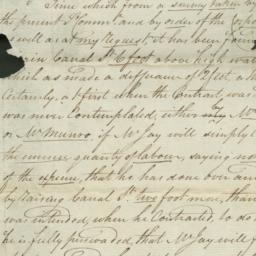 Time which from a survey taken by
the present Comm and by order of the
as well as at my request it has been
Canal St 6 feet above high wat
which as made a differance of 2 feet, a
Certainly, at first when the Contract was
was never Contemplated, either by M
or Mr Munro, if Mr Jay will simply
the immense quantity of labour, saying no
of the expense, that he has done over an
by Raising Canal St. two foot more, than
was intended, when he Contracted to do
he is fully persuaded, that Mr Jay will f